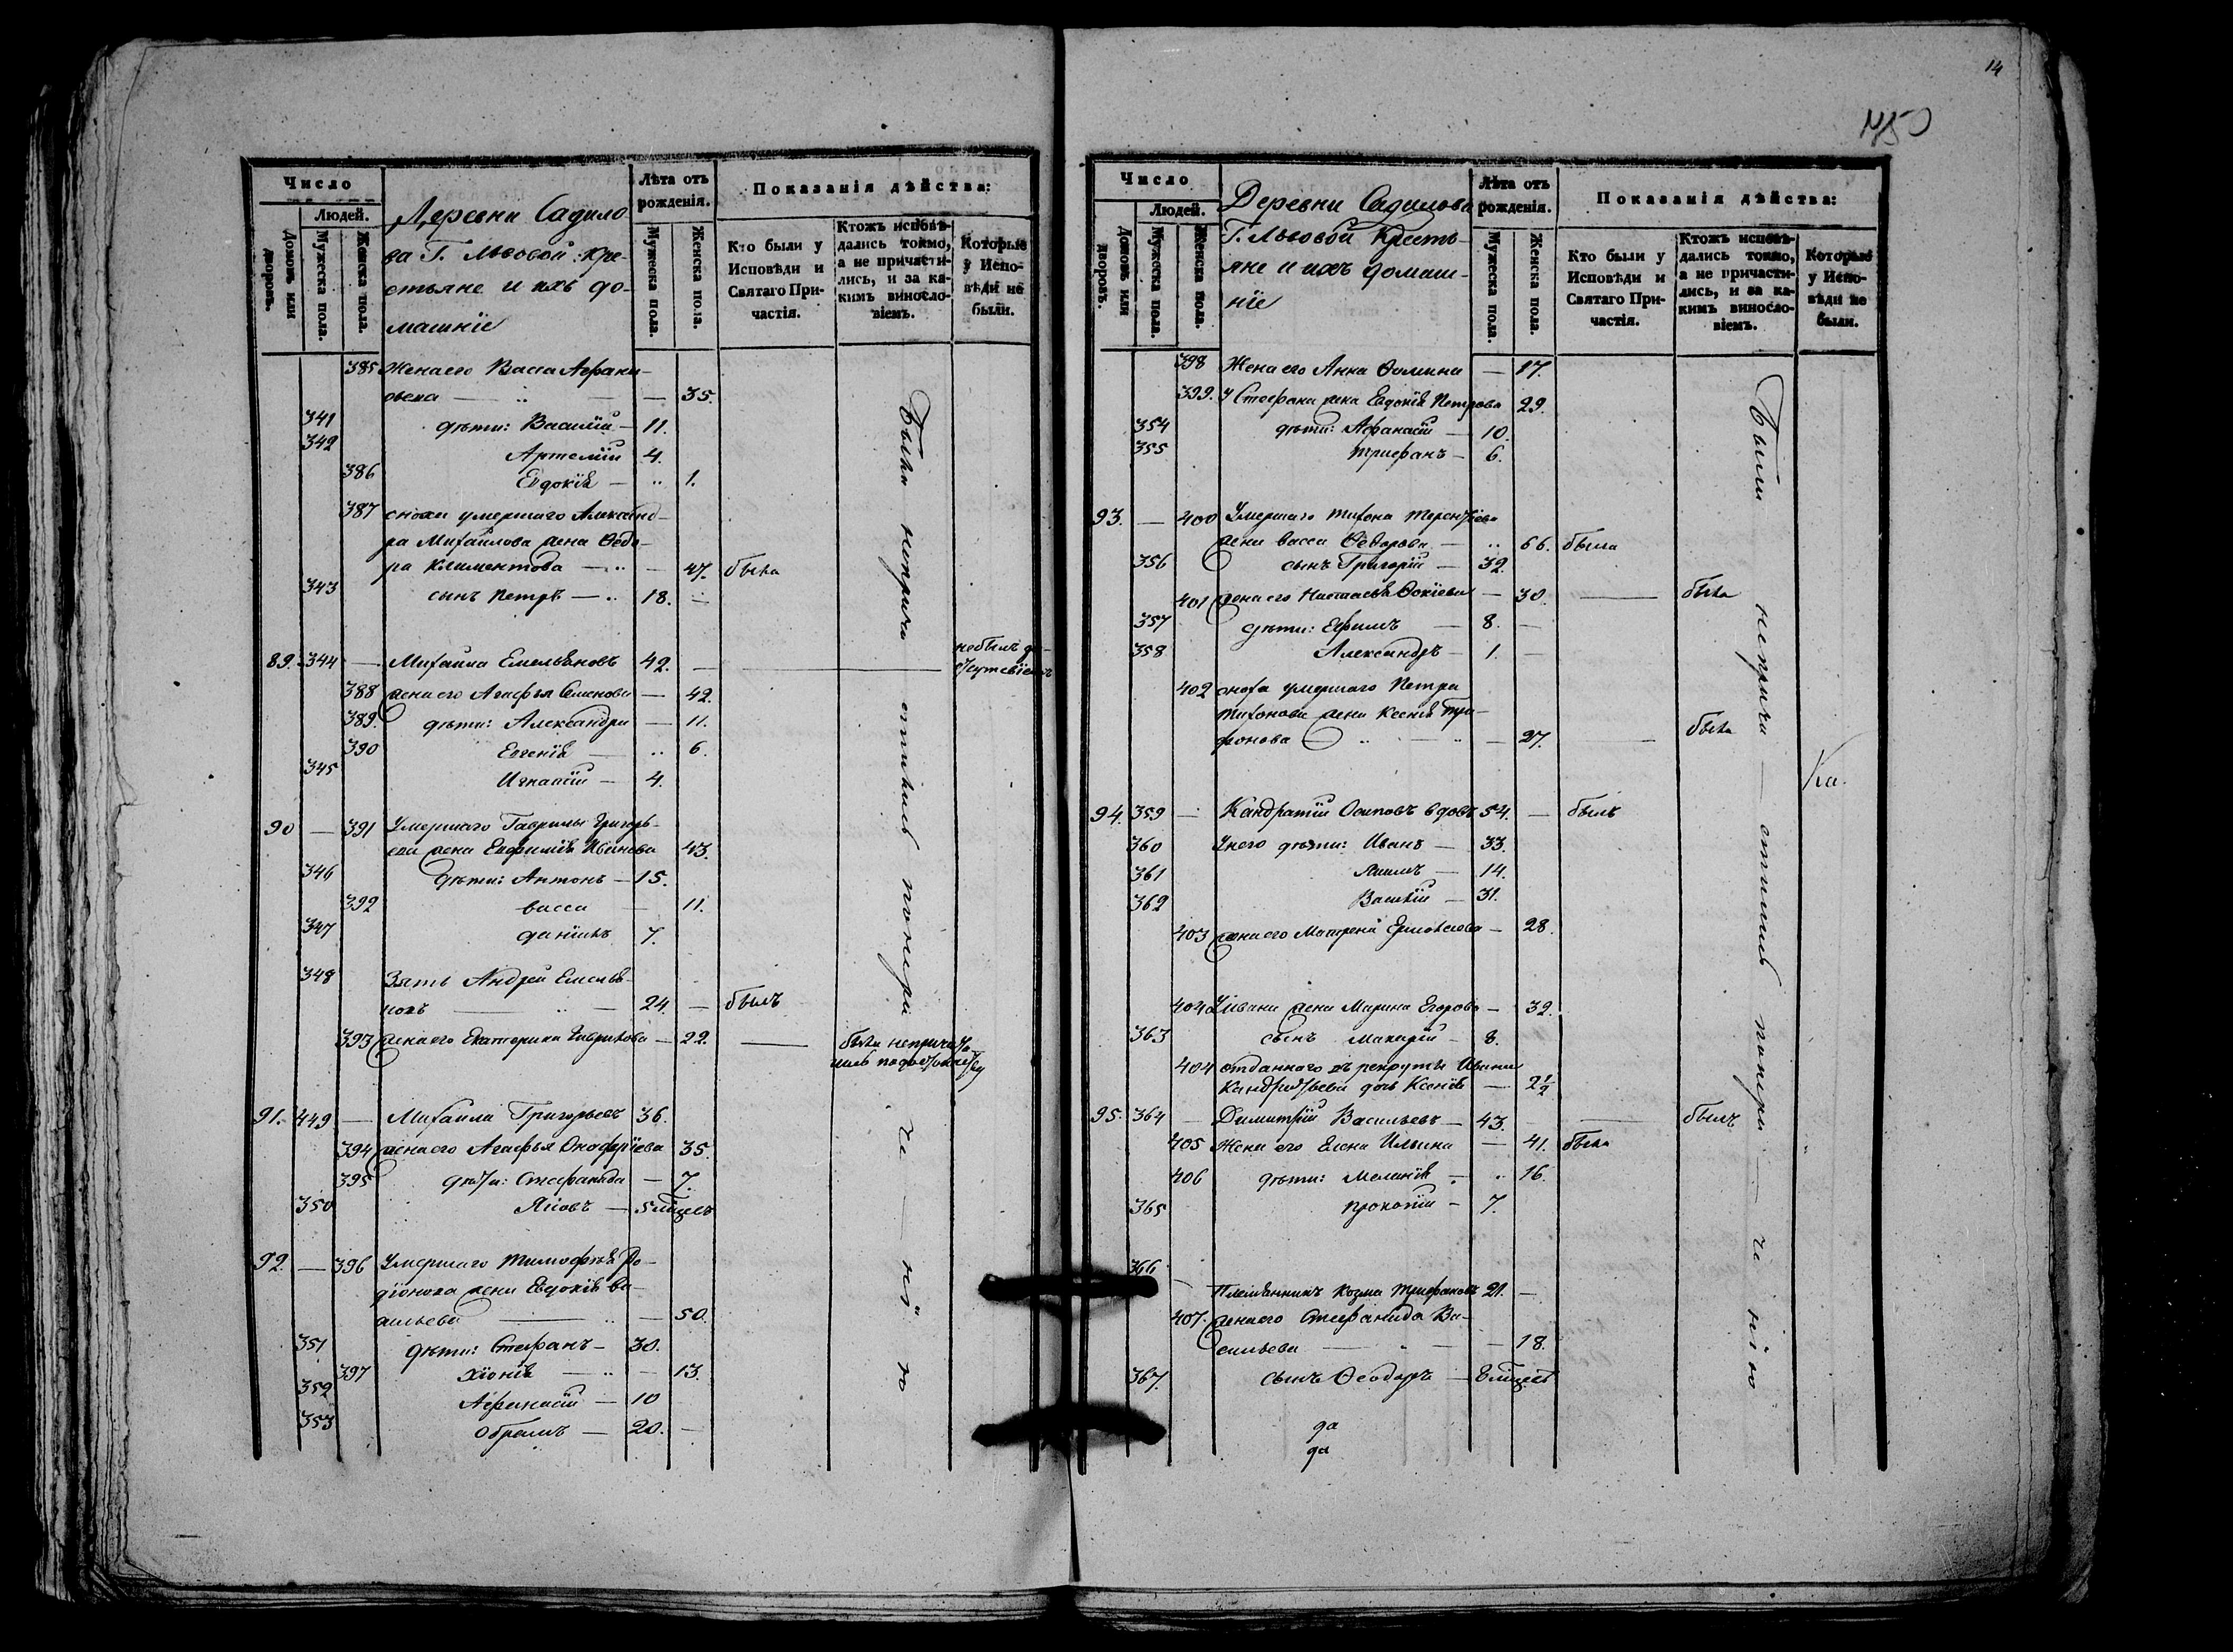 14
Число
Людей.
Домовъ или дворовъ.
Мужеска пола.
Женска пола.
Деревни Садило-
ва Г. Львовой кре-
стьяне и ихъ до-
машніе
Лѣта отъ рожденія.
Мужеска пола.
Женска пола.
Показанія дѣйства:
Кто были у Исповѣди и Святаго При-частія.
Ктожъ исповѣ-дались токмо, а не причасти-лись, и за ка-кимъ винослo-віемъ.
Которые у Испо-вѣди не были.
385 Жена его Васса Афрани-
— 35.
341 дѣти: Василій — 11.
342 Артемій 4.
386 Евдокія — 1.
387 сноха умершаго Александ-
ра Михайлова жена Ѳедо-
ра Климентова — 47. была
343 сынъ Петръ — 18.
89. 344 — Михаила Емельяновъ 42. — не былъ
388 жена его Агафья Семенова — 42.
389. дѣти: Александра — 11.
390 Евгенія — 6.
345 Игнатій — 4.
90 — 391 Умершаго Гаврилы Григорь-
ева жена Евфимія Иванова 43.
346 дѣти: Антонъ — 15.
392 васса — 11.
347 даніилъ 7.
348 Зять Андрей Емелья-
новъ — 24. — былъ
393 жена его Екатерина Гаврилова — 22. — была
91. 449 — Михаила Григорьевъ 36.
394 жена его Агафья Онофріева 35.
395 дѣти: Стефанида — 7.
350 Яковъ — 5 мѣсец
92. — 396 Умершаго Тимофея Ро-
діонова жена Евдокія Ва-
сильева — 50.
351 дѣти: Стефанъ — 30.
397 Хіонія — 13.
352 Афанасій — 10
353 Обрамъ — 20. —
Число
Людей.
Домовъ или дворовъ.
Мужеска пола.
Женска пола.
Деревни Садилова
Г. Львовой кресть-
яне и ихъ домаш-
ніе
Лѣта отъ рожденія.
Мужеска пола.
Женска пола.
Показанія дѣйства:
Кто были у Исповѣди и Святаго При-частія.
Ктожъ исповѣ-дались токмо, а не причасти-лись, и за ка-кимъ винослo-віемъ.
Которые у Испо-вѣди не были.
398 Жена его Анна Ѳомина — 17.
399. У Стефана жена Евдокія Петрова 29.
354 дѣти: Афанасій — 10.
355 Трифанъ — 6.
93. — 400 Умершаго Тихона Терентьева
жена васса Ѳедорова — 66. была
356 сынъ Григорій — 32.
401 жена его Настасья — 30 — была
357 дѣти: Ефимъ — 8. —
358 Александръ — 1. —
402 сноха умершаго Петра
Тихонова жена Ксенія Три-
фонова — 27. — была
94. 359 — Кандратій Осиповъ вдовъ 54. — былъ
360 У него дѣти: Иванъ — 33.
361 — 14.
362 Василій — 31.
403 жена его Матрена — 28.
404 У ивана жена Марина Егорова — 32.
363 сынъ Макарій — 8.
404 отданнаго въ рекруты Ивана
Кандратьева дочь Ксенія — 2 1/2
95. 364 — Димитрій Васильевъ — 43. — былъ
405 Жена его Елена Ильина — 41. была
406 дѣти: Меланія — 16.
365 Прокопій — 7.
366 — Племянникъ Козма Трифановъ 21. —
407. жена его Стефанида Ва-
сильева — 18.
367. сынъ Ѳеодоръ — 8 мѣсец
да
да